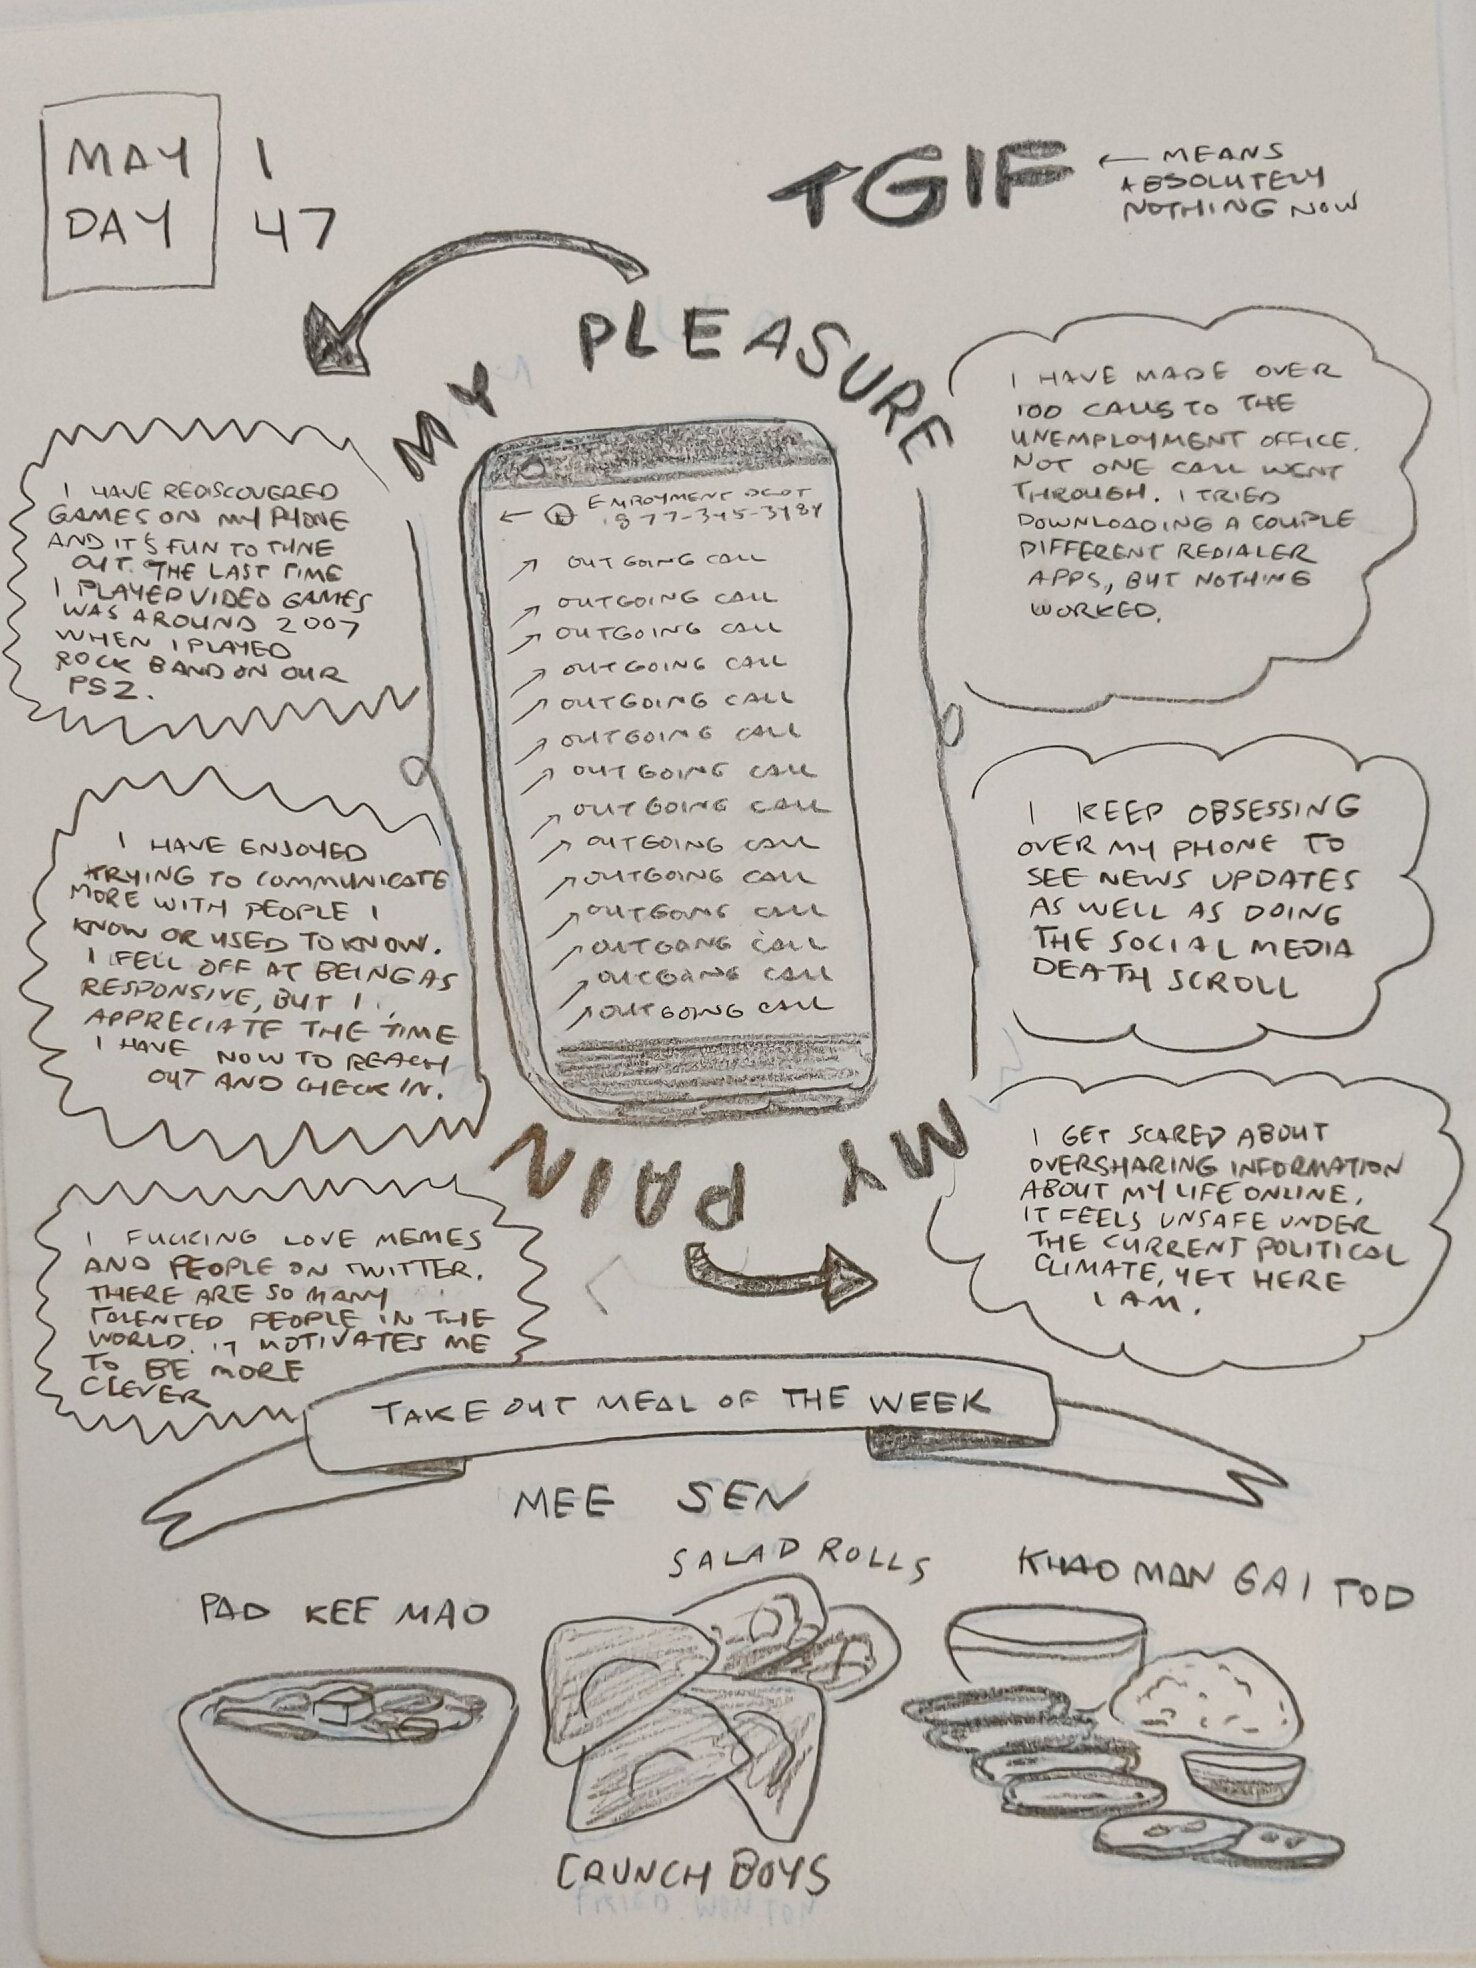 MAY 1
DAY 47
TGIF
← MEANS
ABSOLUTELY
NOTHING NOW
MY PLEASURE
I HAVE REDISCOVERED
GAMES ON MY PHONE
AND IT'S FUN TO TUNE
OUT. THE LAST TIME
I PLAYED VIDEO GAMES
WAS AROUND 2007
WHEN I PLAYED
ROCK BAND ON OUR
PS2.
I HAVE ENJOYED
TRYING TO COMMUNICATE
MORE WITH PEOPLE I
KNOW OR USED TO KNOW.
I FELL OFF AT BEING AS
RESPONSIVE, BUT I
APPRECIATE THE TIME
I HAVE NOW TO REACH
OUT AND CHECK IN.
I FUCKING LOVE MEMES
AND PEOPLE ON TWITTER.
THERE ARE SO MANY
TALENTED PEOPLE IN THE
WORLD. IT MOTIVATES ME
TO BE MORE
CLEVER
EMPOYMENT DEPT
1877-345-3484
OUTGOING CALL
OUTGOING CALL
OUTGOING CALL
OUTGOING CALL
OUTGOING CALL
OUTGOING CALL
OUTGOING CALL
OUTGOING CALL
OUTGOING CALL
OUTGOING CALL
OUTGOING CALL
OUTGOING CALL
OUTGOING CALL
OUTGOING CALL
I HAVE MADE OVER
100 CALLS TO THE
UNEMPLOYMENT OFFICE.
NOT ONE CALL WENT
THROUGH. I TRIED
DOWNLOADING A COUPLE
DIFFERENT REDIALER
APPS, BUT NOTHING
WORKED.
I KEEP OBSESSING
OVER MY PHONE TO
SEE NEWS UPDATES
AS WELL AS DOING
THE SOCIAL MEDIA
DEATH SCROLL
I GET SCARED ABOUT
OVERSHARING INFORMATION
ABOUT MY LIFE ONLINE.
IT FEELS UNSAFE UNDER
THE CURRENT POLITICAL
CLIMATE, YET HERE
I AM.
MY PAIN
TAKE OUT MEAL OF THE WEEK
MEE SEN
PAD KEE MAO
SALAD ROLLS
KHAO MAN GAI TOD
CRUNCH BOYS